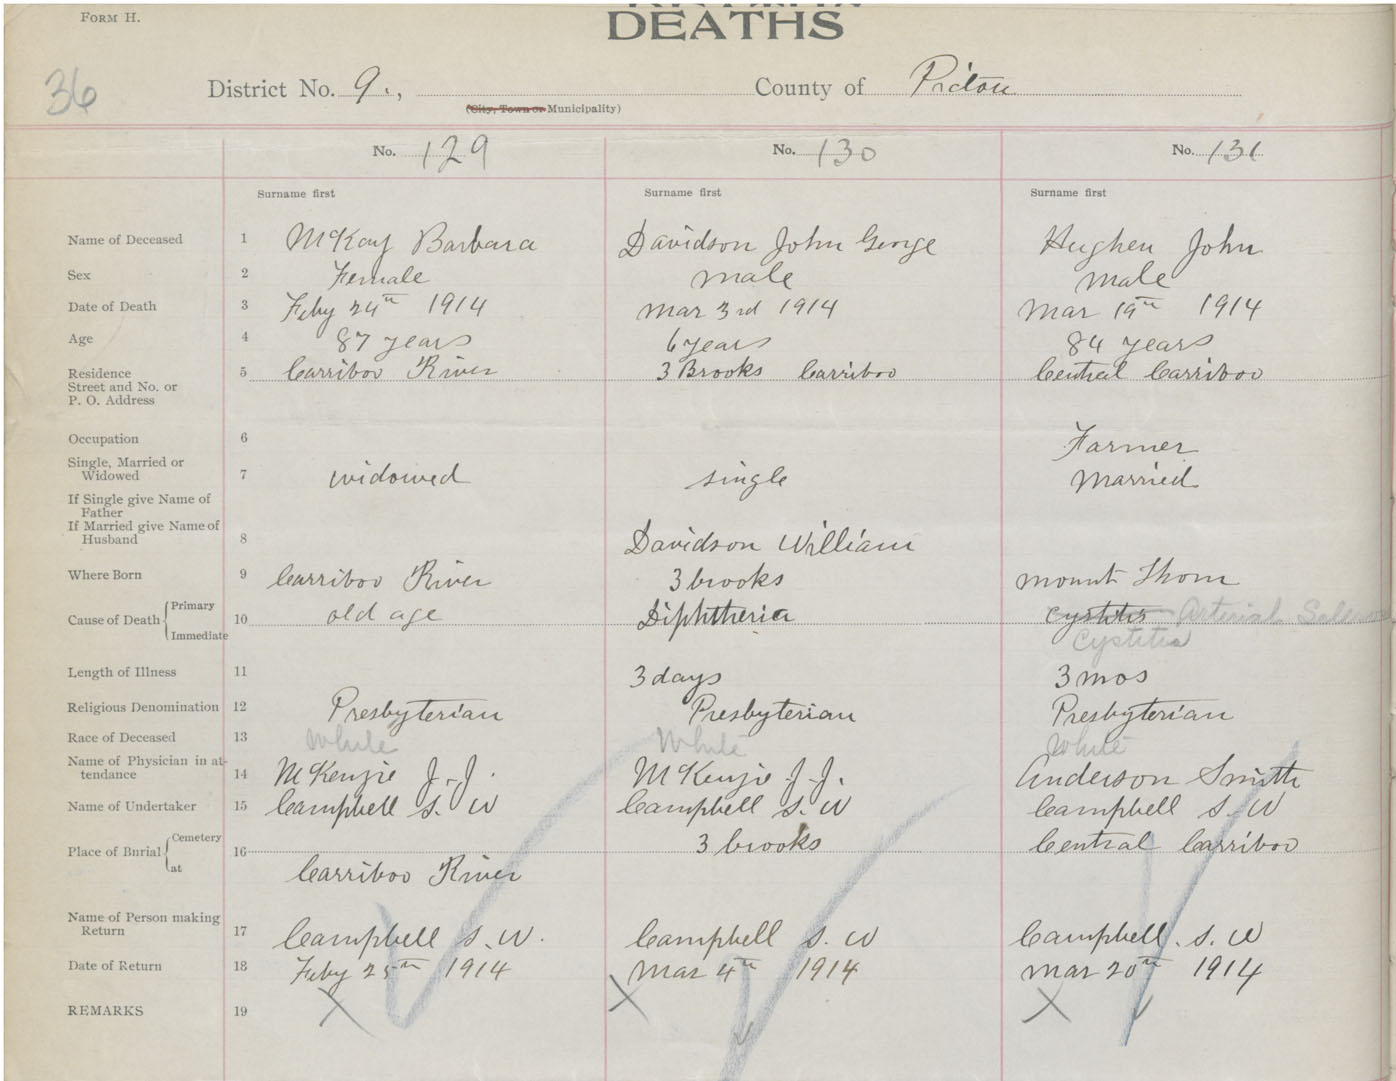 FORM H.
DEATHS
36
District No. 9., County of Pictou
(City, Town or Municipality)
No. 129 No. 130 No. 131
Surname first Surname first Surname first
Name of Deceased 1 McKay Barbara Davidson John George Hughen John
Sex 2 Female male male
Date of Death 3 Feby 24th 1914 Mar 3rd 1914 Mar 19th 1914
Age 4 87 years 6 years 84 years
Residence 5 Carriboo River 3 Brooks Carriboo Central Carriboo
Street and No. or
P. O. Address
Occupation 6 Farmer
Single, Married or
Widowed 7 widowed single Married
If Single give Name of
Father
If Married give Name of
Husband 8 Davidson William
Where Born 9 Carriboo River 3 brooks Mount Thom
Cause of Death { Primary
Immediate 10 old age Diphtheria Cystitis Arterial
Cystitis
Length of Illness 11 3 days 3 mos
Religious Denomination 12 Presbyterian Presbyterian Presbyterian
Race of Deceased 13 White White White
Name of Physician in at-
tendance 14 McKenzie J. J. McKenzie J. J. Anderson Smith
Name of Undertaker 15 Campbell S. W Campbell S. W Campbell S. W
Place of Burial { Cemetery
at 16 Carriboo River 3 brooks Central Carriboo
Name of Person making
Return 17 Campbell S. W. Campbell S. W Campbell. S. W
Date of Return 18 Feby 25th 1914 Mar 4th 1914 Mar 20th 1914
REMARKS 19 X X X